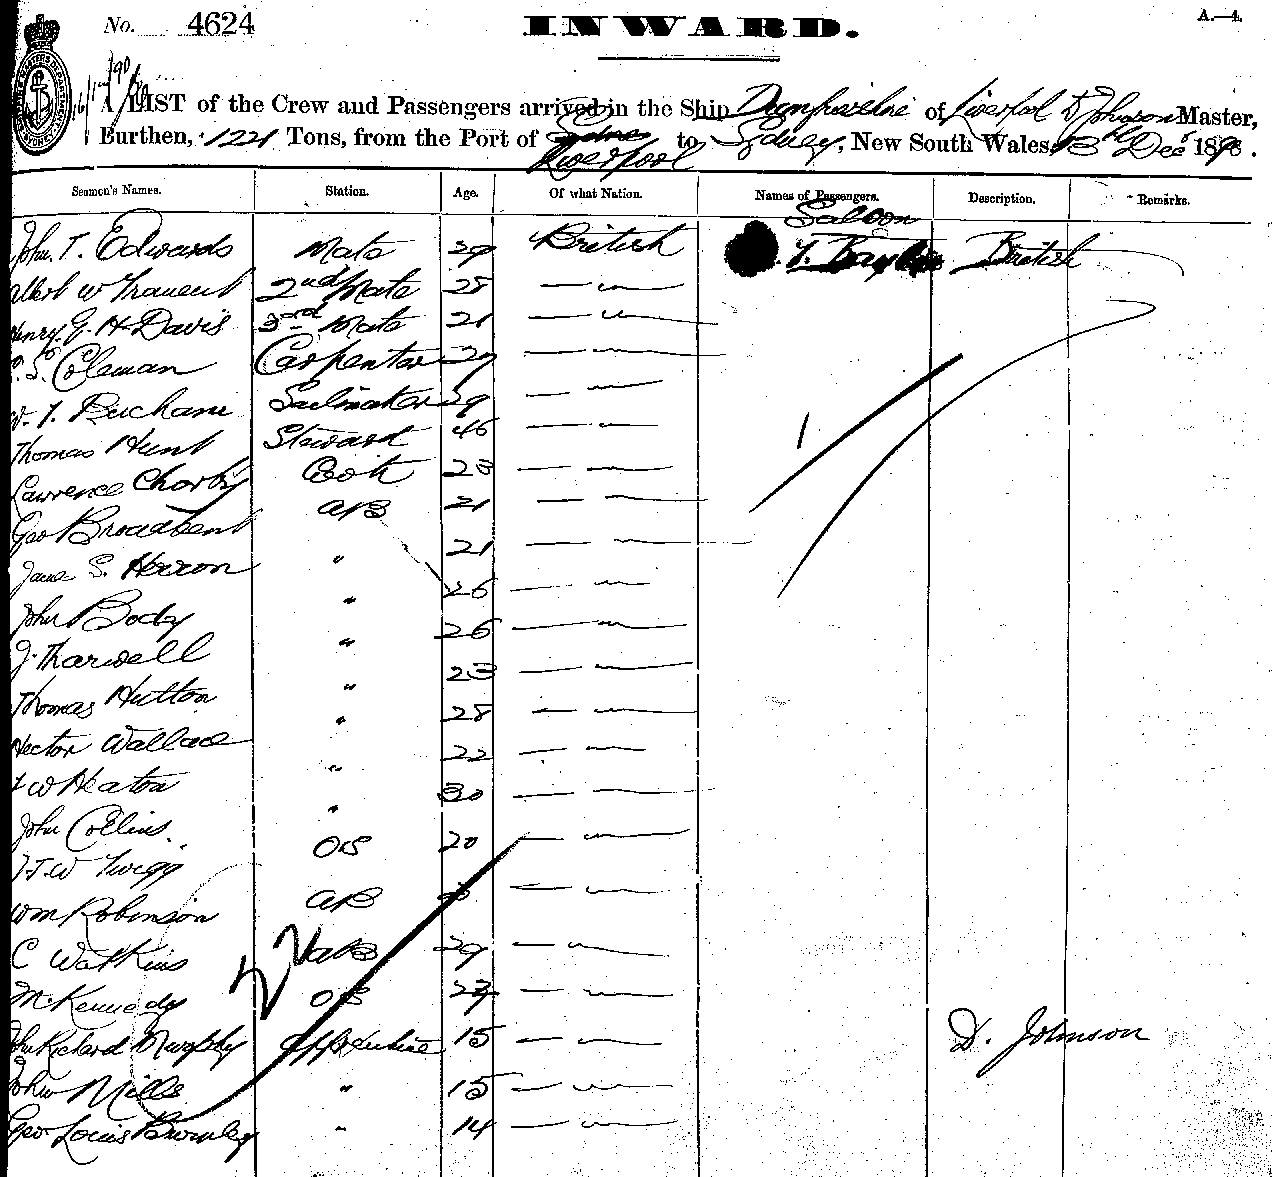 No. 4624 INWARD. A.—4.
LIST of the Crew and Passengers arrived in the Ship Dumfriesshire of Liverpool D Johnson Master,
Burthen, 1221 Tons, from the Port of Liverpool to Sydney, New South Wales, Dec 189
Seamen's Names. Station. Age. Of what Nation. Names of Passengers. Description. Remarks.
Saloon
John. T. Edwards Mate 29 British British
Albert W 2nd Mate 28 — —
Henry. G. H Davis 3rd Mate 21 — —
S. Coleman Carpenter 29 — —
W. T. Buchan Sailmaker 29 — —
Thomas Hunt Steward 46 — —
Lawrence Cook 23 — —
Geo Broadbent AB 21 — —
S. Herron " 21 — —
John Body " 26 — —
J. Tharwell " 26 — —
Thomas Hutton " 23 — —
Hector Wallace " 28 — —
W Heaton " 22 — —
John Collins. " 30 — —
W Twigg OS 20 — —
Wm Robinson AB — —
C Watkins AB 29 — —
McKennedy OS — —
John Richard Murphy Apprentice 15 — —
John Mills " 15 — —
Geo Louis " 14 — —
22
1
D. Johnson